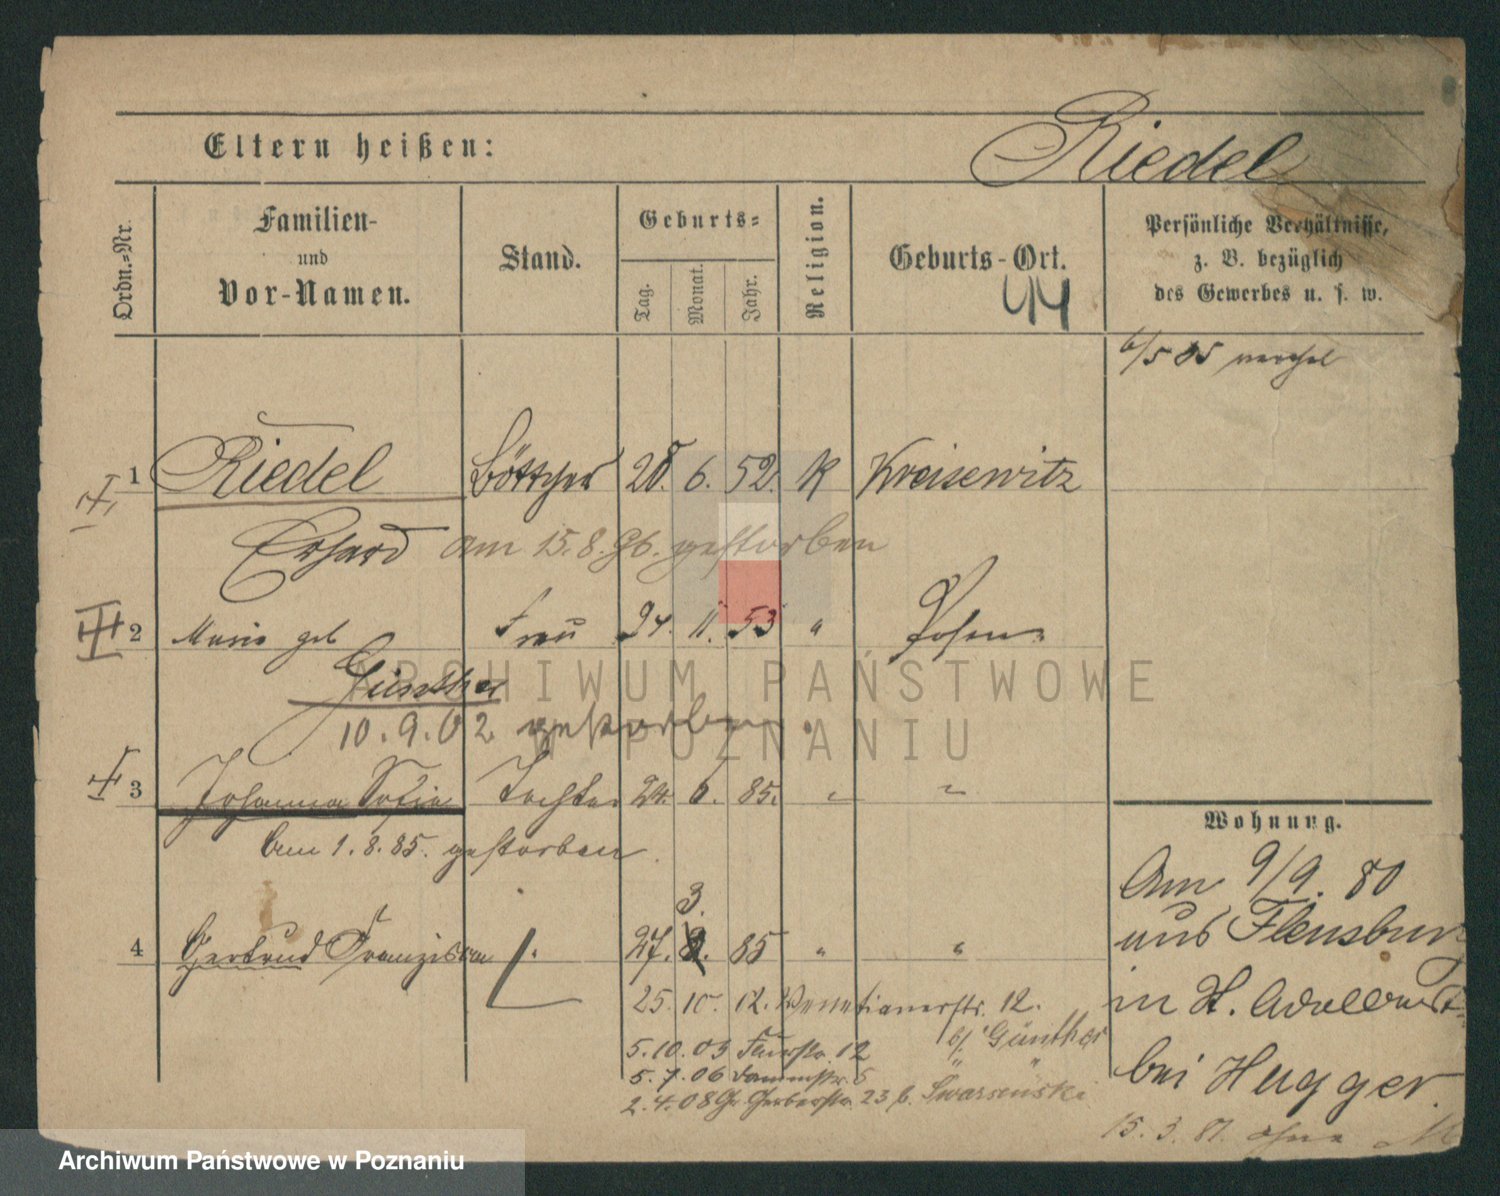 Eltern heißen:
Riedel
Ordn.-Nr.
Familien-
und
Vor-Namen.
Stand.
Geburts-
Tag.
Monat.
Jahr.
Religion.
Geburts-Ort.
44
Persönliche Verhältnisse,
z. B. bezüglich
des Gewerbes u. s. w.
6/5 85
1 Riedel Böttcher 28. 6. 52. K Kreisewitz
Erhard am 15.8.96. gestorben
2 Marie geb Frau 24. 11. 53 " Posen
Günther
10.9.02 gestorben
3 Johanna Sofie Tochter 24. 6. 85. " "
Am 1.8.85. gestorben.
3.
4 Gertrud Franziska " 27. 85 " "
25. 10. 12. Venetianerstr. 12.
5.10.05 12 b/ Günther
5.7.06 Dammstr. 5 "
2.4.08 Gr. Gerberstr. 23 b.
Wohnung.
Am 9/9. 80
aus Flensburg
in St. Adalbert
bei Hugger.
15.3.81. ohne
ARCHIWUM PAŃSTWOWE
W POZNANIU
Archiwum Państwowe w Poznaniu